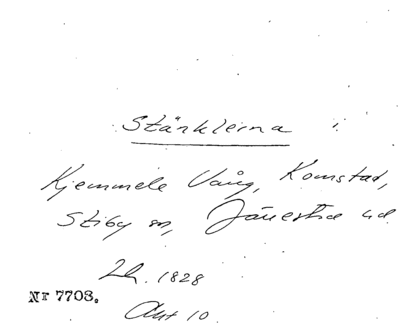 Stänklerna i
Kjemmele Vång, Komstad,
Stiby sn, Järrestad hd.
Lh. 1828
Nr 7703.
Akt 10